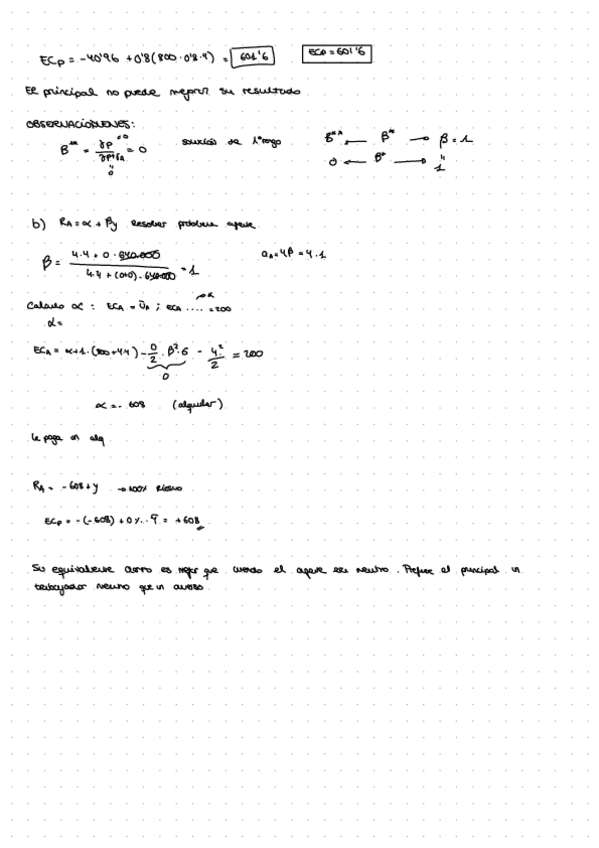 ECp = -40'96 + 0'8(800 + 0'8·4) = 601'6   ECp = 601'6
El principal no puede mejorar su resultado
OBSERVACIONES:
β** = γp / γp+γA = 0   solución de 1º rango   β** ← β* → β = 1
0 ← β* → 1
b) RA = α + βy   Resolver problema agente
β = 4·4 + 0 · 640.000 / 4·4 + (0+0)·640.000 = 1   aA = 4β = 4·1
Calculo α : ECA = ŪA ; ECA .... = 200
α =
ECA = α + 1·(800+4·4) - 0/2 · β²·σ - 4²/2 = 200
0
α = - 608   (alquiler)
le paga un alq
RA = - 608 + y   → 100% riesgo
ECp = -(-608) + 0% · ȳ = +608
Su equivalente cierto es mejor que cuando el agente es neutro. Prefiere el principal un
trabajador neutro que un averso